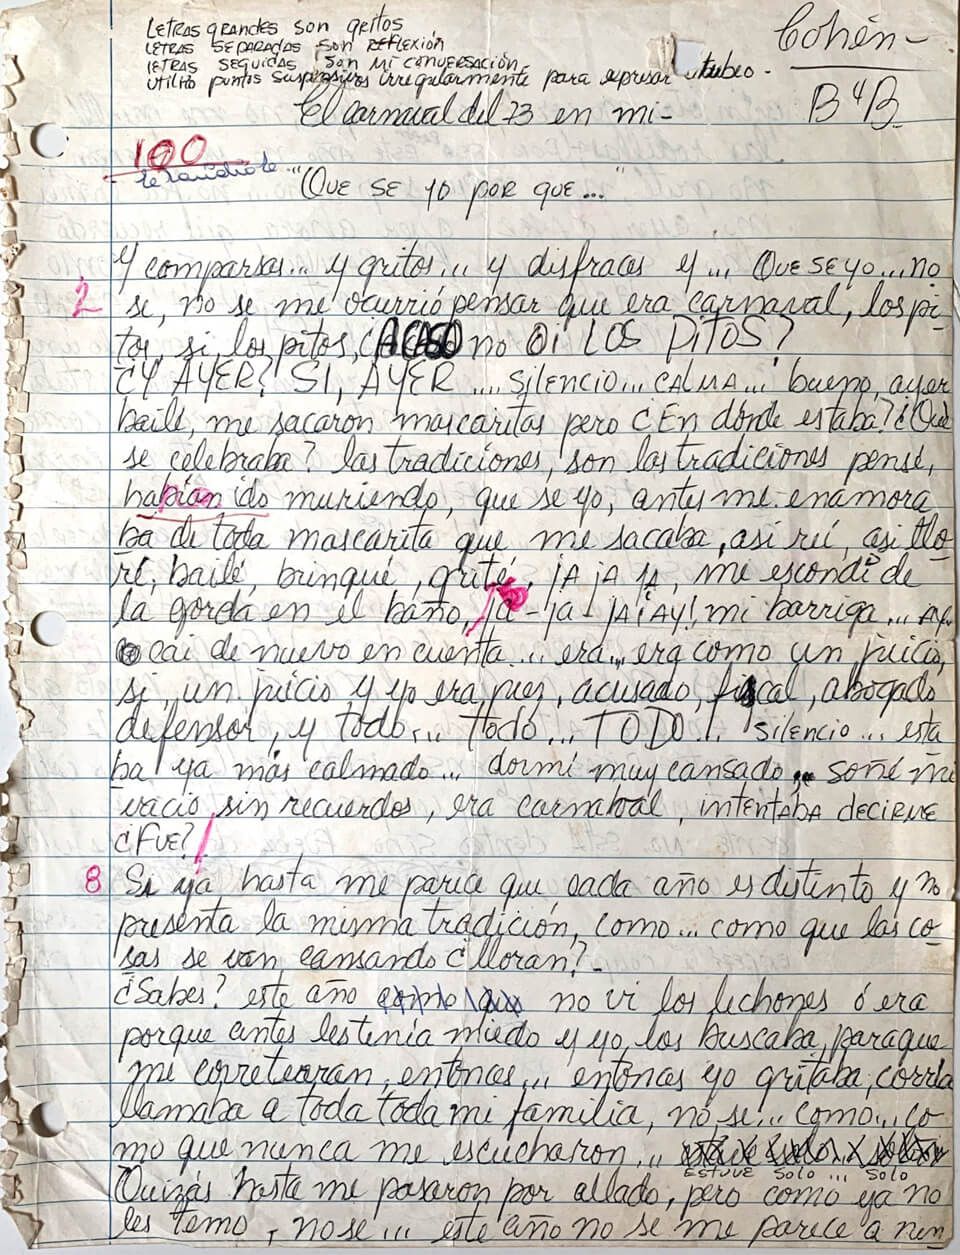 Letras grandes son gritos
Letras separadas son reflexión
letras seguidas son mi conversación.
utilizo puntos suspensivos irregularmente para expresar titubeo.
Cohén-
B 4 B
El carnaval del 73 en mi-
100
"Que se yo por que..."
Y comparsas... y gritos... y disfraces y... Que se yo... no
2 se, no se me ocurrió pensar que era carnaval, los pi-
tos, si, los pitos, ¿ACASO no OI LOS PITOS?
¿Y AYER? SI, AYER .... silencio... calma... bueno, ayer
bailé, me sacaron mascaritas pero ¿En dónde estaba? ¿Qué
se celebraba? las tradiciones, son las tradiciones pensé,
habían ido muriendo, que se yo, antes me enamora
ba de toda mascarita que me sacaba, asi reí, asi llo-
ré, bailé, brinqué, grité, jA jA jA, me escondí de
la gorda en el baño, ja - ja - jA ¡AY! mi barriga... Ay
cai de nuevo en cuenta... era... era como un juicio,
si, un juicio y yo era juez, acusado, fiscal, abogado
defensor, y todo... todo... TODO... silencio... esta
ba ya más calmado... dormí muy cansado, soñé mi
vacio, sin recuerdos, era carnaval, intentaba decirme
¿Fue?
8 Si ya hasta me parece que cada año es distinto y no
presenta la misma tradición, como... como que las co-
sas se van cansando ¿lloran?-
¿Sabes? este año como que no vi los lechones ó era
porque antes les tenia miedo y yo, los buscaba, para que
me corretearan, entonces... entonces yo gritaba, corria
llamaba a toda toda mi familia, no se... como... co-
mo que nunca me escucharon...
estuve solo ... solo
Quizás hasta me pasaron por allado, pero como ya no
les temo, no se... este año no se me parece a nin